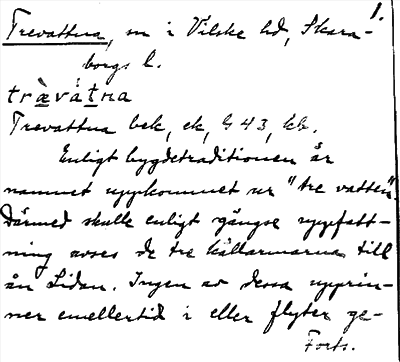 1.
Trevattna, sn i Vilske hd, Skara-
borgs l.
trævátna
Trevattna bek, ek, G 43, kb.
Enligt bygdetraditionen är
namnet uppkommet ur "tre vatten".
Därmed skulle enligt gängse uppfatt-
ning avses de tre källarmarna till
ån Lidan. Ingen av dessa upprin-
ner emellertid i eller flyter ge-
Forts.